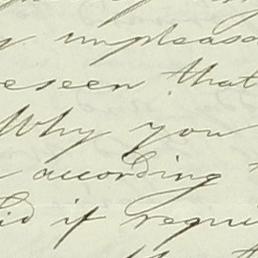 unpleasa
reseen that
Why you
according
did if requi